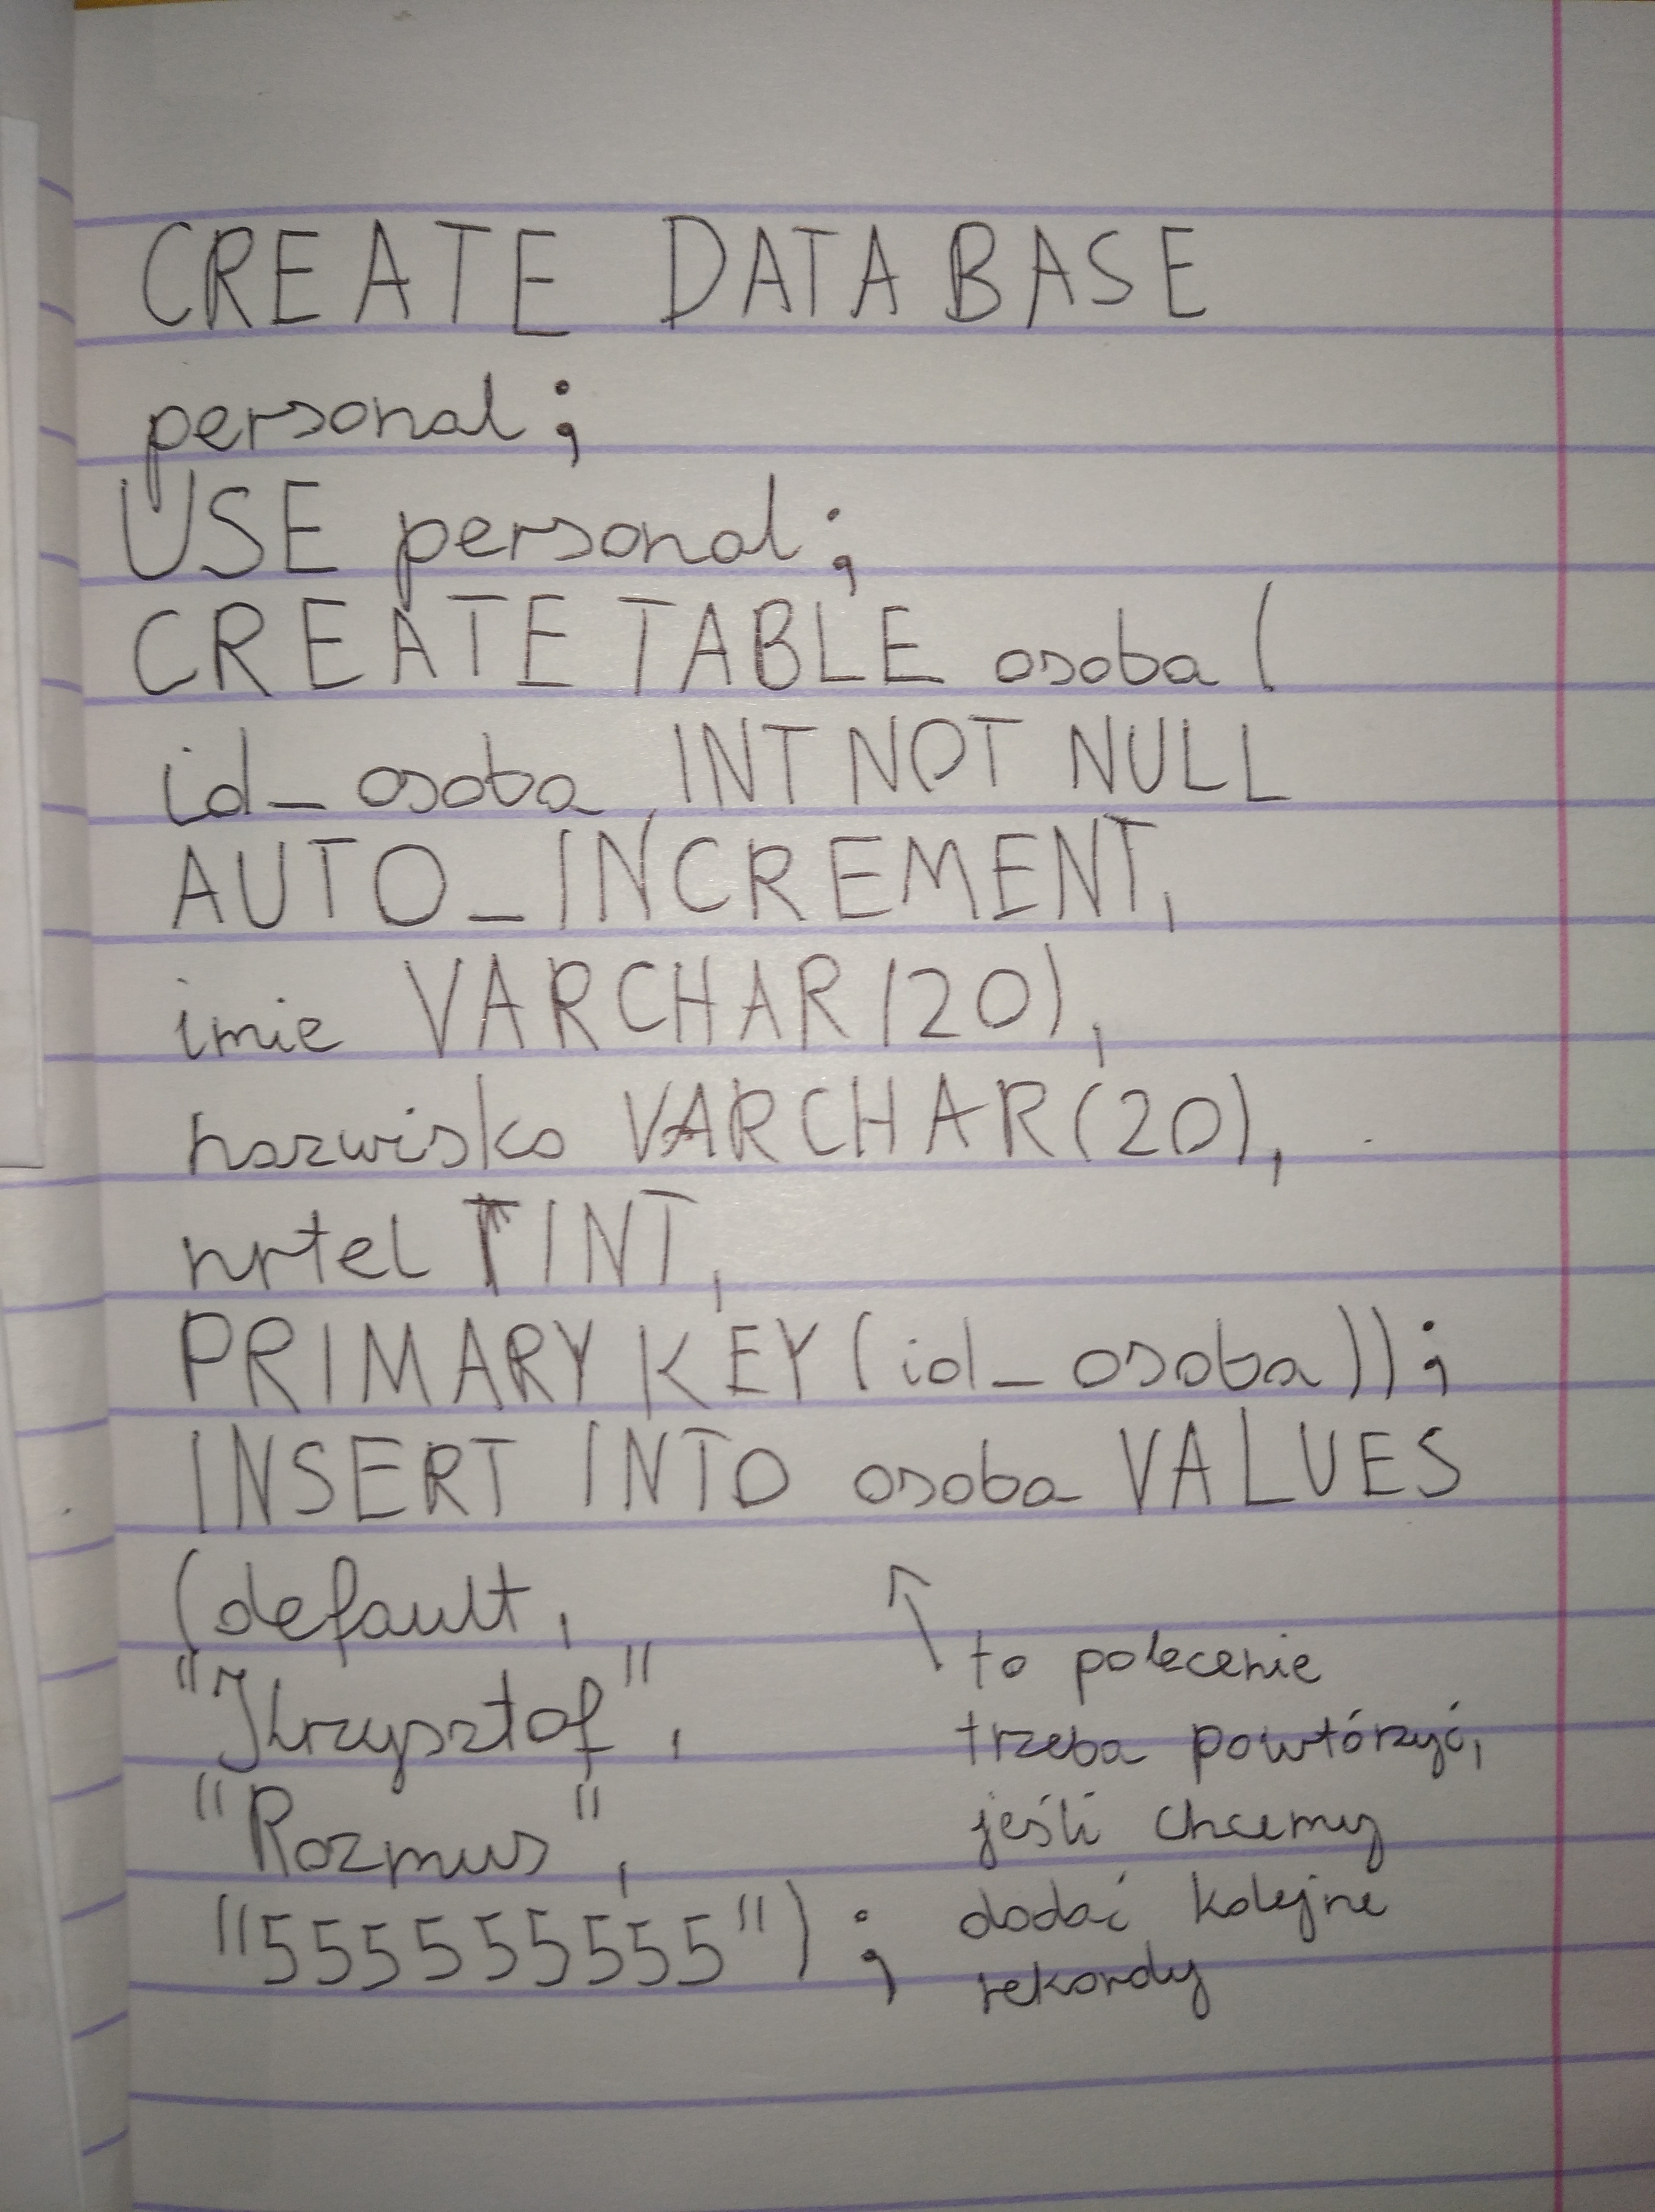 CREATE DATABASE
personal;
USE personal;
CREATE TABLE osoba (
id_osoba INT NOT NULL
AUTO_INCREMENT,
imie VARCHAR(20),
nazwisko VARCHAR(20),
nrtel INT,
PRIMARY KEY (id_osoba));
INSERT INTO osoba VALUES
(default,
"Krzysztof",
"Rozmus",
"555555555");
to polecenie
trzeba powtórzyć,
jeśli chcemy
dodać kolejne
rekordy